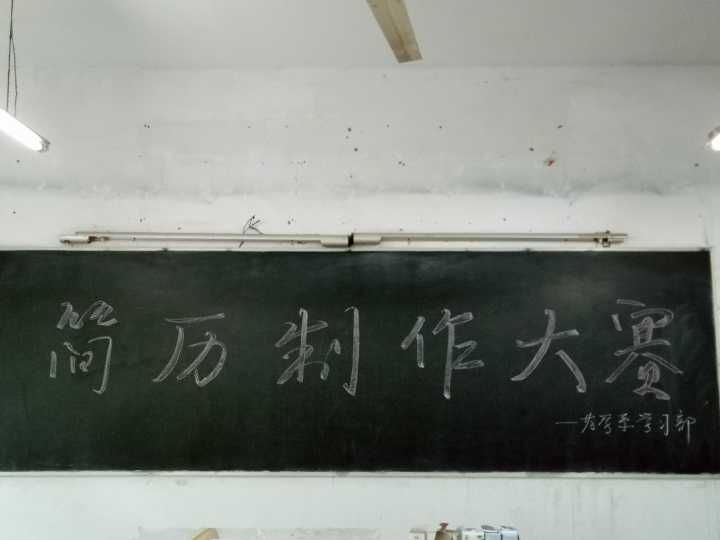 简历制作大赛
学系学习部